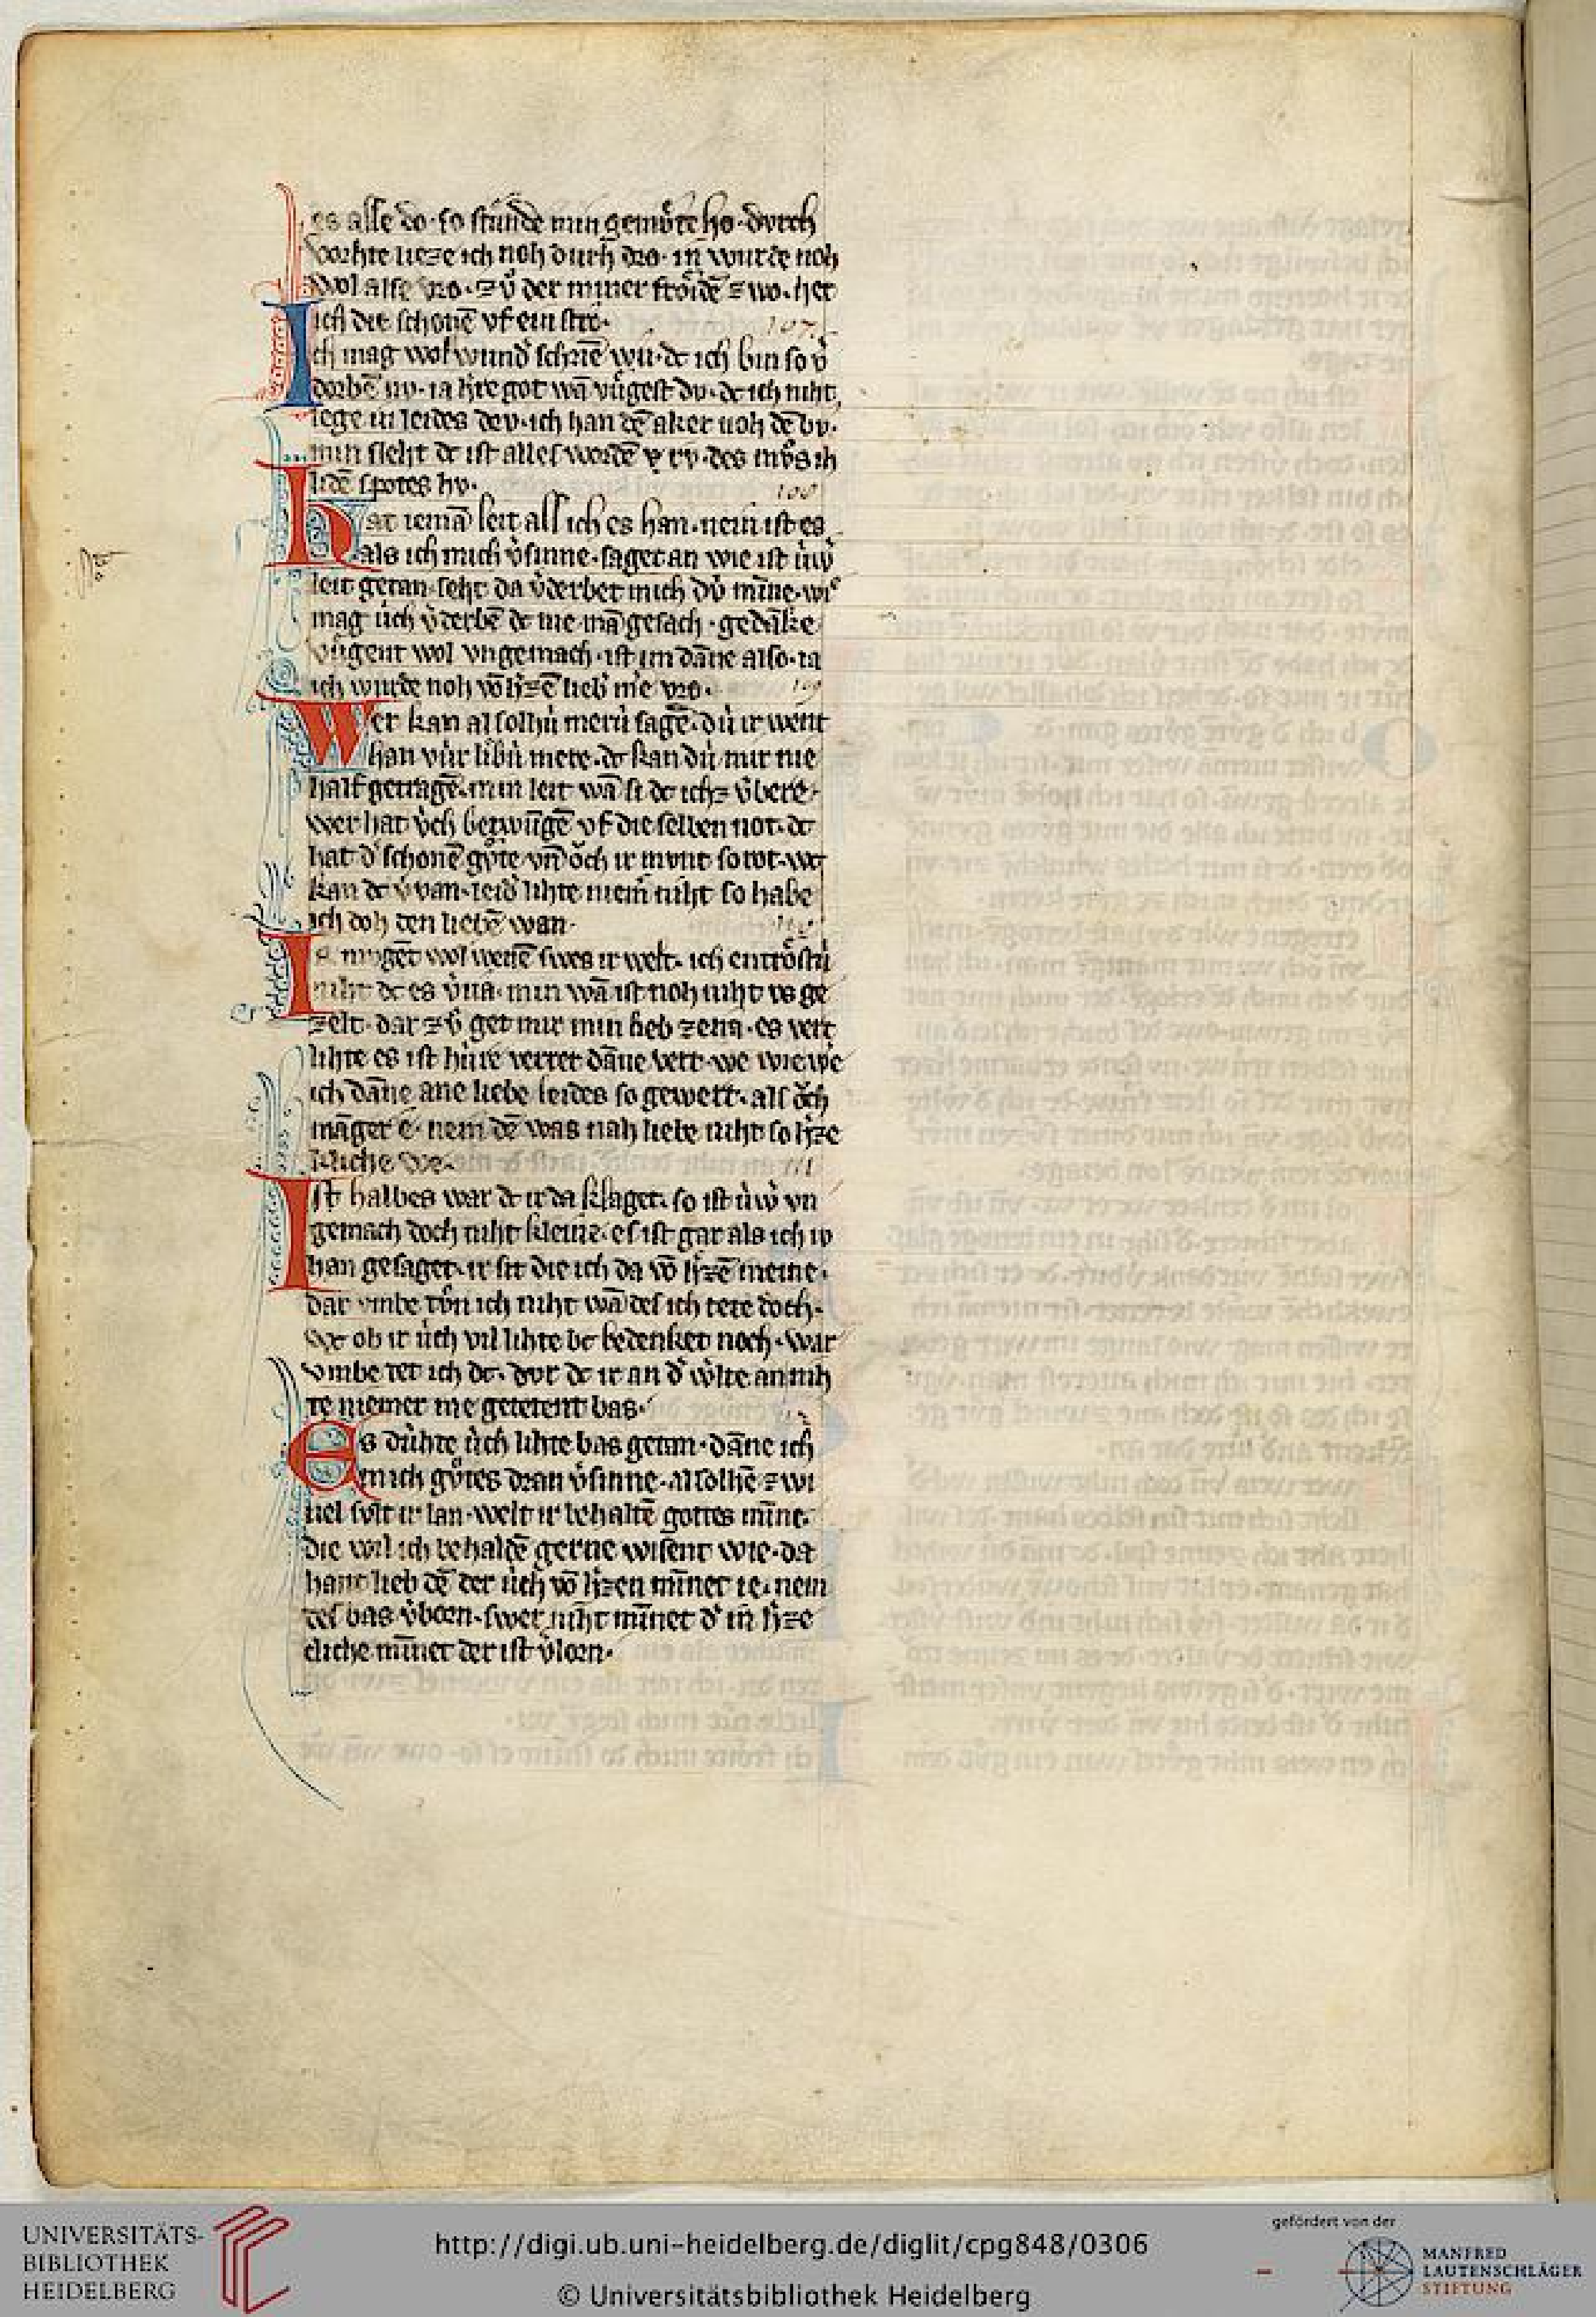 es alle do · so stůnde min gemv̊te ho · dvrch
vorhte lieze ich noh durh dro · in wurde noh
wol alse vro · zv̊ der miner frôide zwo · her
ich die schonē vf ein stro ·
107.
Ich mag wol wund̾ schriē wu · dc ich bin so v̾
dorbē nv · ia h̾re got wā vůgest dv · dc ich niht
lege in leides dev · ich han dē aker noh dē bv ·
min sleht dc ist alles wordē rv · des mv̊s ih
lidē spotes hv ·
108
Hat iemā leit als ich es han · nein ist es
als ich mich v̾sinne · saget an wie ist ùw̾
leit getan · seht da v̾derbet mich dù mīne · wie
mag ùch v̾derbē dc nie mā gesach · gedāke
vůgent wol vngemach · ist im dāne also · ia
ich wurde noh vō h̾zē lieb̾ nie vro ·
109
Wer kan al solhù merù sagē · dù ir went
han vùr libù mere · dc kan dù mir nie
halb getragē · min leit wā si dc ichz v̾bere ·
wer hat v̀ch betwūgē vf die selben not · dc
hat d̾ schonē gv̊te vn̄ ôch ir mvnt so rot · wc
kan dc v̾van · leid̾ lihte niem̄ niht so habe
ich doh den liebē wan ·
110
Ir mvgēt wol wenē swes ir welt · ich entrôstù
niht dc es v̾ua · min wā ist noh niht vs ge
zelt · dar zv̊ get mir min lieb ze na · es vert
lihte es ist hùre verrer dāne vert · we wie we
ich dāne ane liebe leides so gewert · als ôch
māger e · nein dē was nah liebe niht so h̾ze
kliche we ·
111
Ist halbes war dc ir da klaget · so ist ùw̾ vn
gemach doch niht kleine · es ist gar als ich iv
han gesaget · ir sit die ich da vō h̾zē meine ·
dar vmbe tůn ich niht wā des ich tete doch ·
wc ob ir ùch vil lihte bc bedenket noch · war
vmbe tet ich dc · dvr dc ir an d̾ w̾lte an nih
te niemer me getetent bas ·
Es dùhte ùch lihte bas getan · dāne ich
mich gv̊tes dran v̾sinne · al solhē zwi
uel svlt ir lan · welt ir behaltē gottes mīne ·
die wil ich behaltē gerne wisent wie · da
hant lieb dē der ùch vō h̾zen mīnet ie · nein
des bas v̾born · swer niht mīnet d̾ in h̾ze
cliche mīnet der ist v̾lorn ·
UNIVERSITÄTS-
BIBLIOTHEK
HEIDELBERG
http://digi.ub.uni-heidelberg.de/diglit/cpg848/0306
© Universitätsbibliothek Heidelberg
gefördert von der
MANFRED
LAUTENSCHLÄGER
STIFTUNG